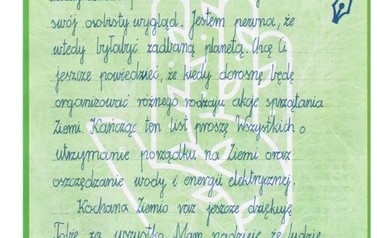 swój osobisty wygląd. Jestem pewna, że
wtedy byłabyś zadbaną planetą. Chcę Ci
jeszcze powiedzieć, że kiedy dorosnę będę
organizować różnego rodzaju akcje sprzątania
Ziemi. Kończąc ten list proszę Wszystkich o
utrzymanie porządku na Ziemi oraz
oszczędzanie wody i energii elektrycznej.
Kochana Ziemio raz jeszcze dziękuję
Tobie za wszystko. Mam nadzieję, że ludzie